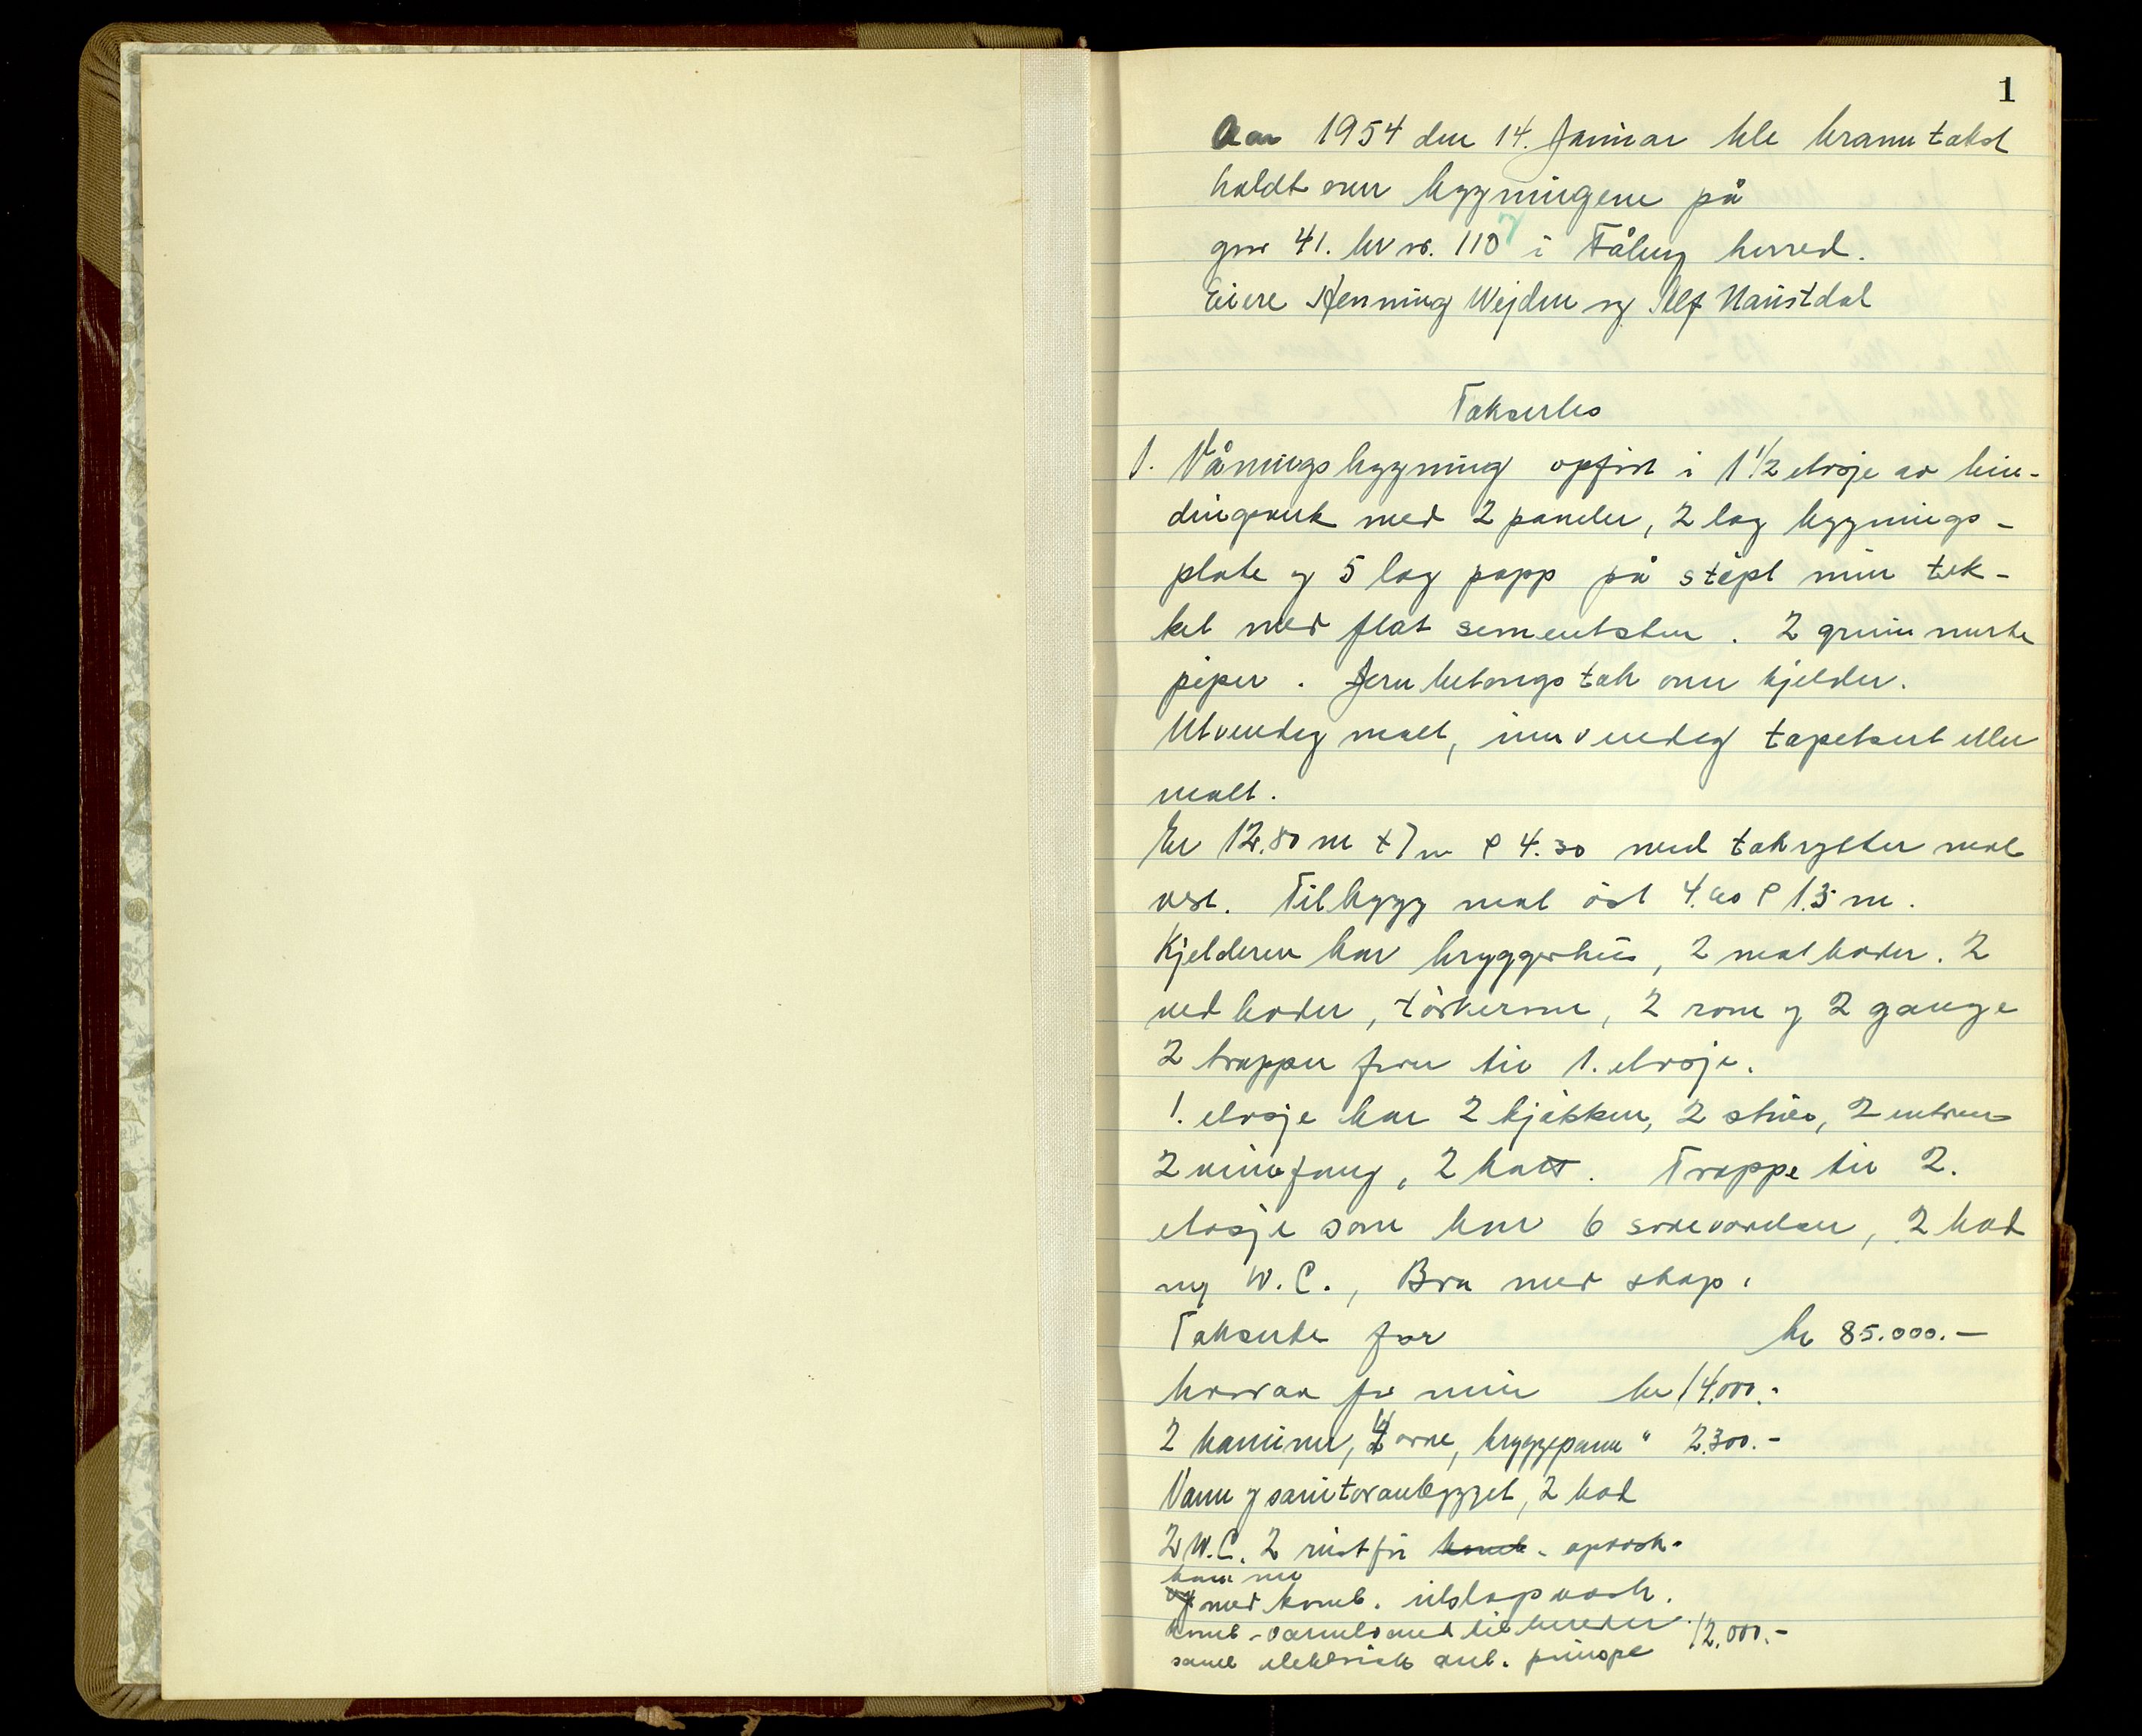 1
Aar 1954 den 14. Januar ble branntakst
holdt over bygningene på
gnr 41. brnr. 110 7 i Fåberg herred.
Eiere Henning Wejden og Alf Naustdal
Takserles
1. Våningsbygning opført i 1 1/2 etasje av bin-
dingsverk med 2 paneler, 2 lag bygnings-
plate og 5 lag papp på støpt mur tek-
ket med flat sementsten. 2 grunnmurte
piper. Jernbetongstak over kjelder.
Utvendig malt, innvendig tapetsert eller
malt.
Er 12.80 m × 7 m × 4.30 med takrytter mot
vest. Tilbygg mot øst 4.60 × 1.5 m.
Kjelderen har bryggerhus, 2 matboder. 2
vedboder, tørkerom, 2 rom og 2 gange
2 trapper fører til 1. etasje.
1. etasje har 2 kjøkken, 2 stuer, 2 entreer
2 vindfang, 2 kott. Trappe til 2.
etasje som har 6 soveværelser, 2 bad
og W.C., Bra med skap.
Takserte for kr 85.000.—
herav for mur kr 14.000.-
2 kaminer, 4 ovne, bryggepanne " 2.300.-
Vann og sanitæranlegget, 2 bad
2 W.C. 2 rustfri komb. opvask-
kummer
og med komb. utslagsvask.
komb. varmtvannstilbereder 12.000.-
samt elektrisk anl. pumpe